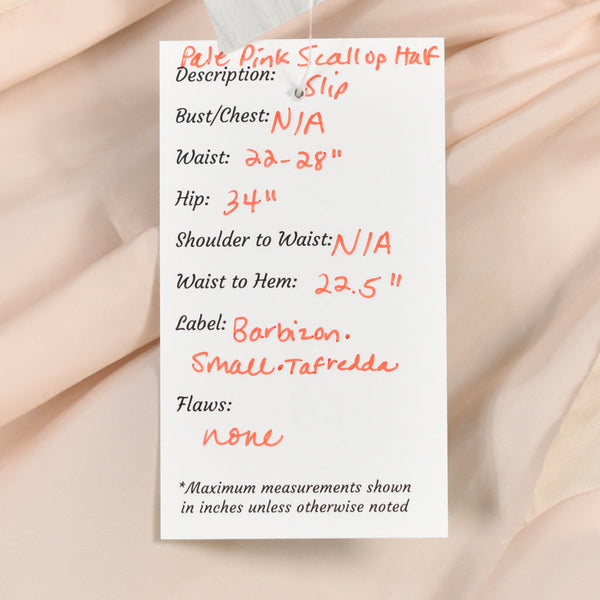 Pale Pink Scallop Half
Description: Slip
Bust/Chest: N/A
Waist: 22-28"
Hip: 34"
Shoulder to Waist: N/A
Waist to Hem: 22.5"
Label: Barbizon.
Small. Tafredda
Flaws:
none
*Maximum measurements shown
in inches unless otherwise noted